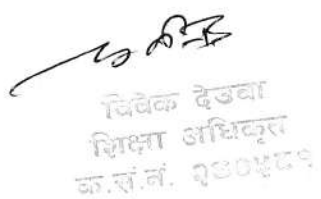 विवेक देउवा
शिक्षा अधिकृत
क.सं.नं. २३०५८१